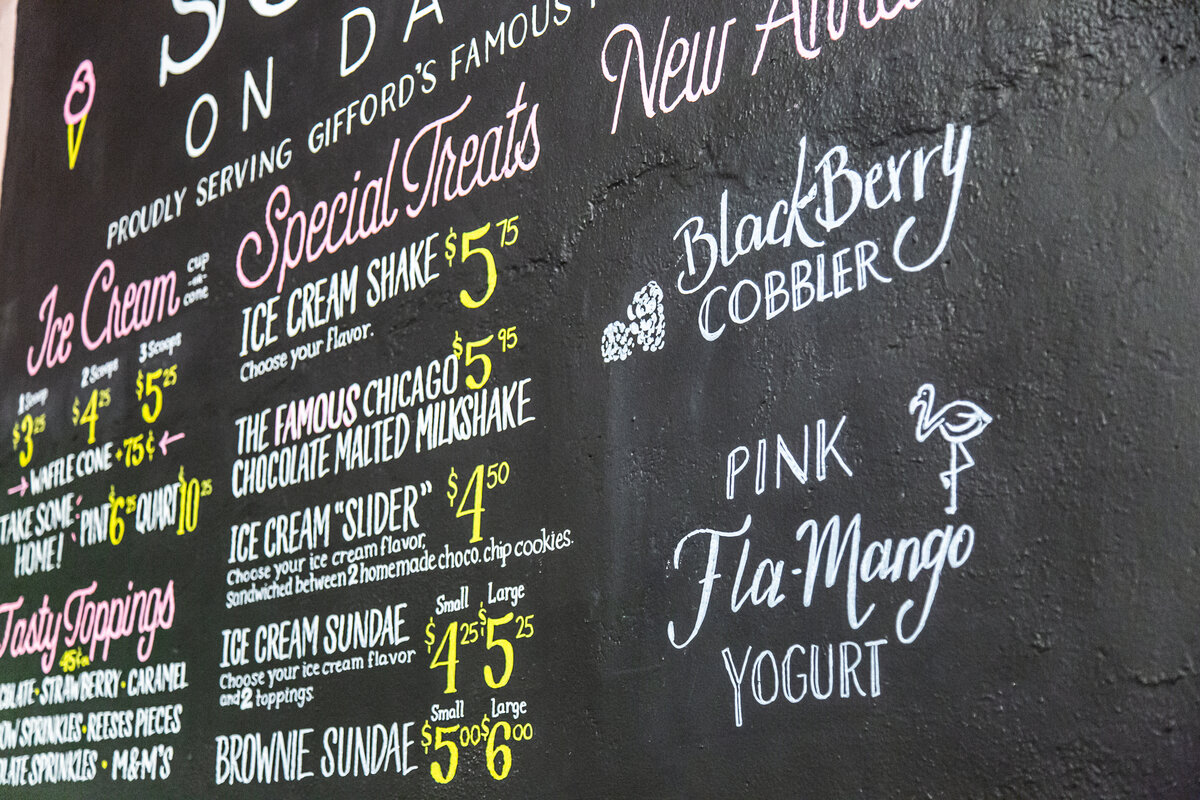 ON DA
PROUDLY SERVING GIFFORD'S FAMOUS
Ice Cream cup -or- cone
1 Scoop 2 Scoops 3 Scoops
$3.25 $4.25 $5.25
WAFFLE CONE +75¢
TAKE SOME HOME! PINT $6.25 QUART $10.25
Tasty Toppings
45¢ ea
STRAWBERRY • CARAMEL
SPRINKLES • REESES PIECES
SPRINKLES • M&M'S
Special Treats
ICE CREAM SHAKE $5.75
Choose your flavor.
THE FAMOUS CHICAGO $5.95
CHOCOLATE MALTED MILKSHAKE
ICE CREAM "SLIDER" $4.50
Choose your ice cream flavor,
Sandwiched between 2 homemade choco. chip cookies.
Small Large
ICE CREAM SUNDAE $4.25 $5.25
Choose your ice cream flavor
and 2 toppings
Small Large
BROWNIE SUNDAE $5.00 $6.00
New
BlackBerry
COBBLER
PINK
Fla-Mango
YOGURT